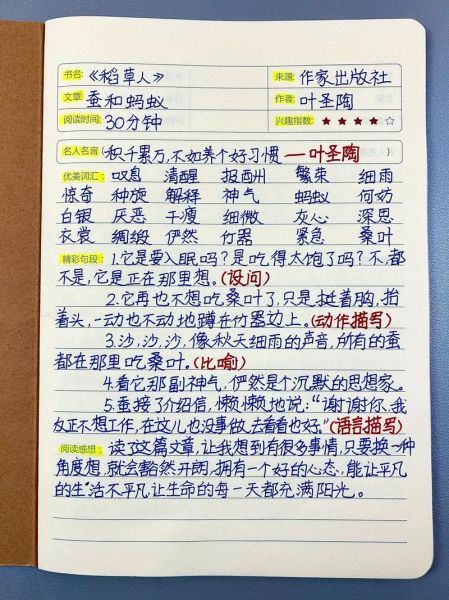 书名:《稻草人》 来源: 作家出版社
文章: 蚕和蚂蚁 作者: 叶圣陶
阅读时间: 30分钟 兴趣指数: ★★★★☆
名人名言(积千累万,不如养个好习惯 —叶圣陶)
优美词汇: 叹息 清醒 报酬 繁荣 细雨
惊奇 种族 解释 神气 蚂蚁 何妨
白银 厌恶 干瘪 细微 灰心 深思
衣裳 绸缎 俨然 竹器 紧急 桑叶
精彩句段: 1.它是要入眠吗?是吃得太饱了吗?不,都
不是,它是正在那里想。(设问)
2.它再也不想吃桑叶了,只是挺着胸,抬
着头,一动也不动地蹲在竹器边上。(动作描写)
3.沙,沙,沙,像秋天细雨的声音,所有的蚕
都在那里吃桑叶。(比喻)
4.看它那副神气,俨然是个沉默的思想家。
5.蚕接了介绍信,懒懒地说:“谢谢你,我
反正不想工作,在这儿也没事做,去看看也好。”(语言描写)
阅读感想: 读了这篇文章,让我想到有很多事情,只要换一种
角度想,就会豁然开朗,拥有一个好的心态,能让平凡
的生活不平凡,让生命的每一天都充满阳光。